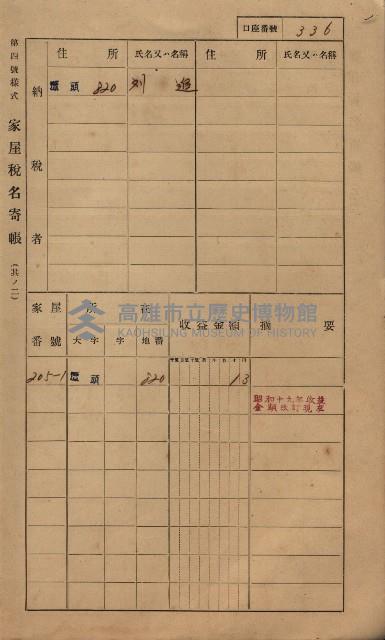 口座番號 336
第四號樣式 家屋稅名寄帳 (其ノ二)
納稅者
住所 氏名又ハ名稱 住所 氏名又ハ名稱
頭 820 劉
家屋番號 家屋所在 收益金額 摘要
大字 字 地番
205-1 頭 820 13
昭和十九年收益
金額改訂現在
高雄市立歷史博物館
KAOHSIUNG MUSEUM OF HISTORY